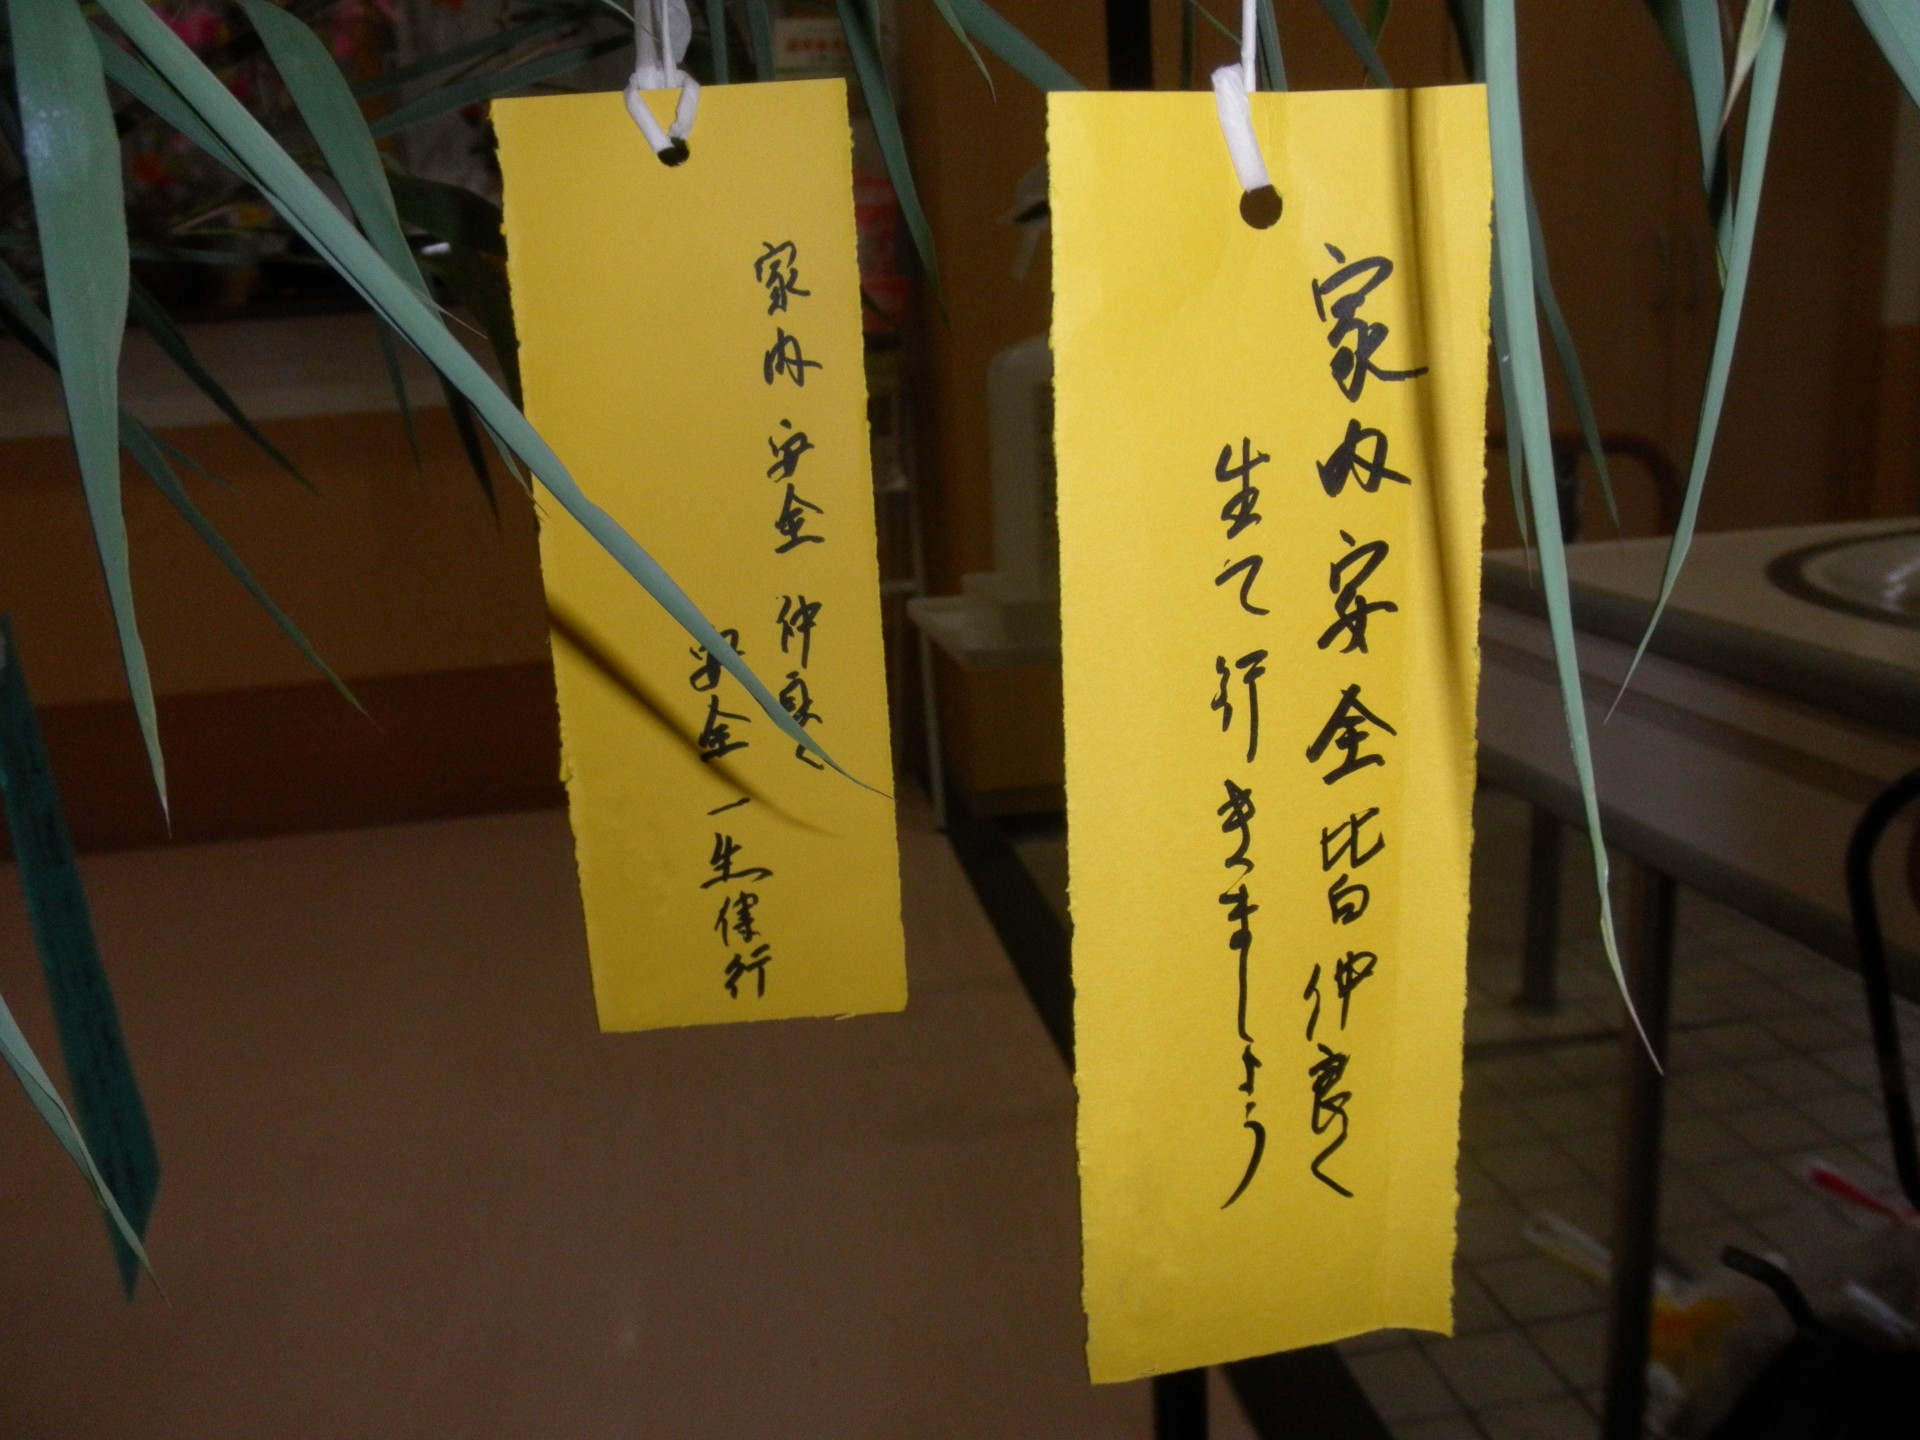 家内安全皆仲良く
生て行きましょう
家内安全仲良く
安全一生健行